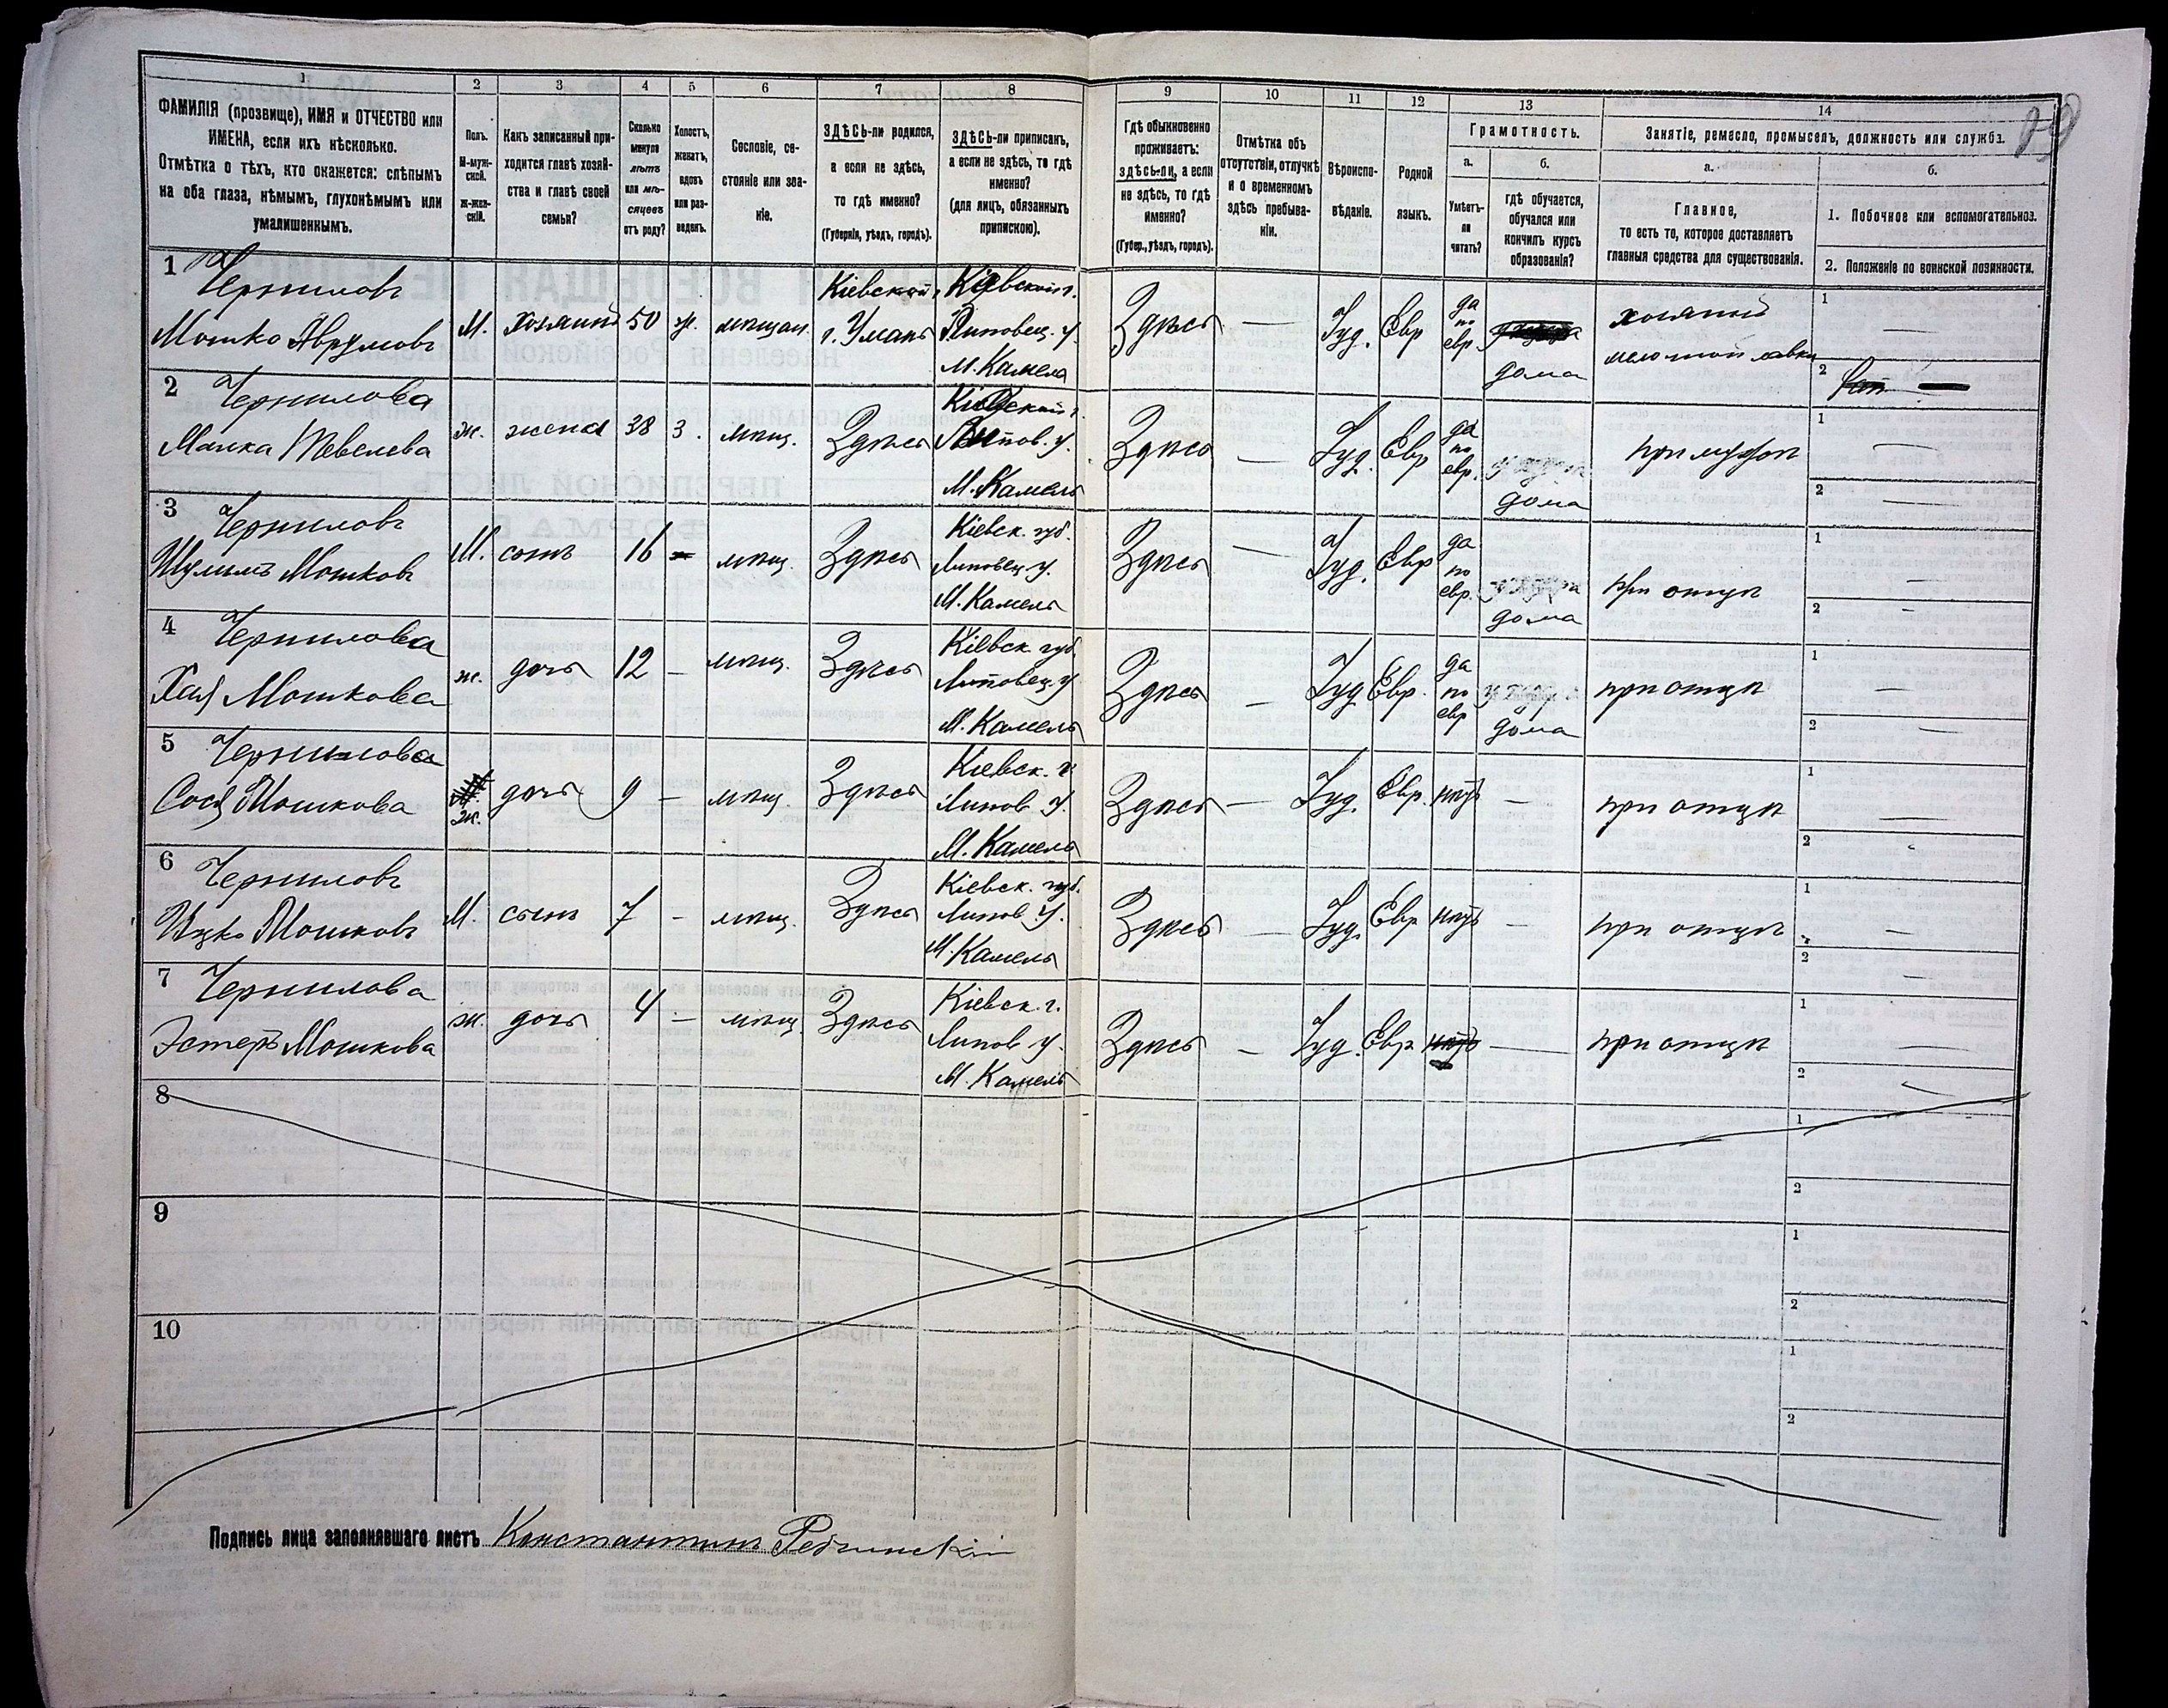 1 2 3 4 5 6 7 8 9 10 11 12 13 14
ФАМИЛІЯ (прозвище), ИМЯ и ОТЧЕСТВО или
ИМЕНА, если ихъ нѣсколько.
Отмѣтка о тѣхъ, кто окажется: слѣпымъ
на оба глаза, нѣмымъ, глухонѣмымъ или
умалишеннымъ.
Полъ.
М-муж-
ской.
Ж-жен-
скій.
Какъ записанный при-
ходится главѣ хозяй-
ства и главѣ своей
семьи?
Сколько
минуло
лѣтъ
или мѣ-
сяцевъ
отъ роду?
Холостъ,
женатъ,
вдовъ
или раз-
веденъ.
Сословіе, со-
стояніе или зва-
ніе.
ЗДѢСЬ-ли родился,
а если не здѣсь,
то гдѣ именно?
(Губернія, уѣздъ, городъ).
ЗДѢСЬ-ли приписанъ,
а если не здѣсь, то гдѣ
именно?
(для лицъ, обязанныхъ
припискою).
Гдѣ обыкновенно
проживаетъ:
здѣсь-ли, а если
не здѣсь, то гдѣ
именно?
(Губер., уѣздъ, городъ).
Отмѣтка объ
отсутствіи, отлучкѣ
и о временномъ
здѣсь пребыва-
ніи.
Вѣроиспо-
вѣданіе.
Родной
языкъ.
Грамотность.
а.
Умѣетъ-
ли
читать?
б.
гдѣ обучается,
обучался или
кончилъ курсъ
образованія?
Занятіе, ремесло, промыселъ, должность или служба.
а.
Главное,
то есть то, которое доставляетъ
главныя средства для существованія.
б.
1. Побочное или вспомогательное.
2. Положеніе по воинской повинности.
1 Черниловъ
Мошко Аврумовъ
М. Хозяинъ 50 ж. мѣщан.
Кіевской г. Умань
Кіевской г.
Липовец. у.
М. Камела
Здѣсь — Іуд. Евр
да
по
евр.
дома
хозяинъ
мелочной лавки
1 —
2
2 Чернилова
Малка Тевелева
ж. жена 38 з. мѣщ. Здѣсь
Липов. у.
М. Камела
Здѣсь — Іуд. Евр
да
по
евр.
дома
при мужѣ
1 —
2 —
3 Черниловъ
Шулимъ Мошковъ
М. сынъ 16 — мѣщ. Здѣсь
Кіевск. губ.
Липовец у.
М. Камела
Здѣсь — Іуд. Евр
да
по
евр.
дома
при отцѣ
1 —
2 —
4 Чернилова
Хая Мошкова
ж. дочь 12 — мѣщ. Здѣсь
Кіевск. губ.
Липовец у
М. Камела
Здѣсь — Іуд Евр.
да
по
евр
дома
при отцѣ
1 —
2 —
5 Чернилова
Сося Мошкова
ж. дочь 9 — мѣщ. Здѣсь
Кіевск. г.
Липов у.
М. Камела
Здѣсь — Іуд. Евр. нѣтъ — при отцѣ
1 —
2
6 Черниловъ
Ицко Мошковъ
М. сынъ 7 — мѣщ. Здѣсь
Кіевск. губ.
Липов у.
М. Камела
Здѣсь — Іуд. Евр нѣтъ — при отцѣ
1 —
2 —
7 Чернилова
Эстеръ Мошкова
ж. дочь 4 — мѣщ. Здѣсь
Кіевск. г.
Липов у.
М. Камела
Здѣсь — Іуд. Евр. нѣтъ — при отцѣ
1 —
2 —
8
1
2
9
1
2
10
1
2
Подпись лица заполнявшаго листъ Константинъ